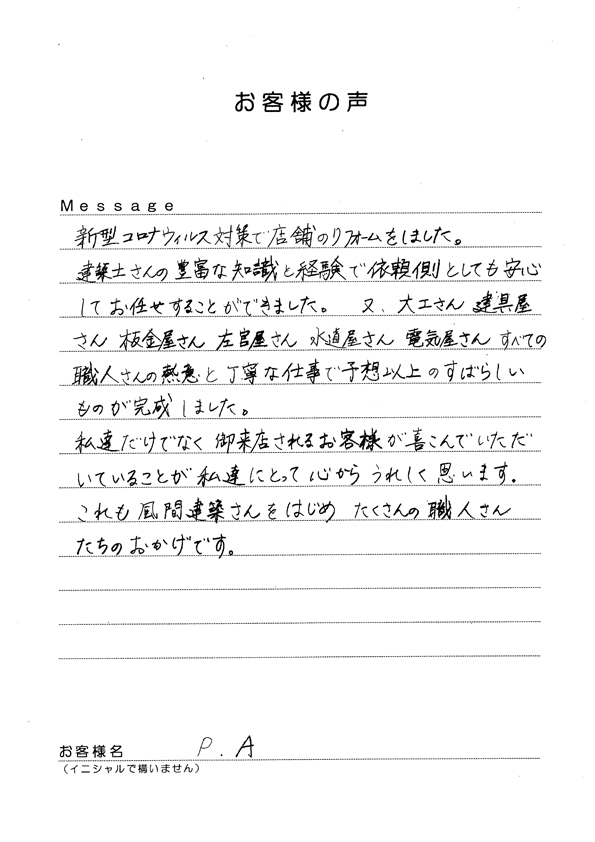 お客様の声
Message
新型コロナウィルス対策で店舗のリフォームをしました。
建築士さんの豊富な知識と経験で依頼側としても安心
してお任せすることができました。 又、大工さん 建具屋
さん 板金屋さん 左官屋さん 水道屋さん 電気屋さん すべての
職人さんの熱意と丁寧な仕事で予想以上のすばらしい
ものが完成しました。
私達だけでなく御来店されるお客様が喜こんでいただ
いていることが私達にとって心からうれしく思います.
これも風間建築さんをはじめ たくさんの職人さん
たちのおかげです。
お客様名 P.A
（イニシャルで構いません）